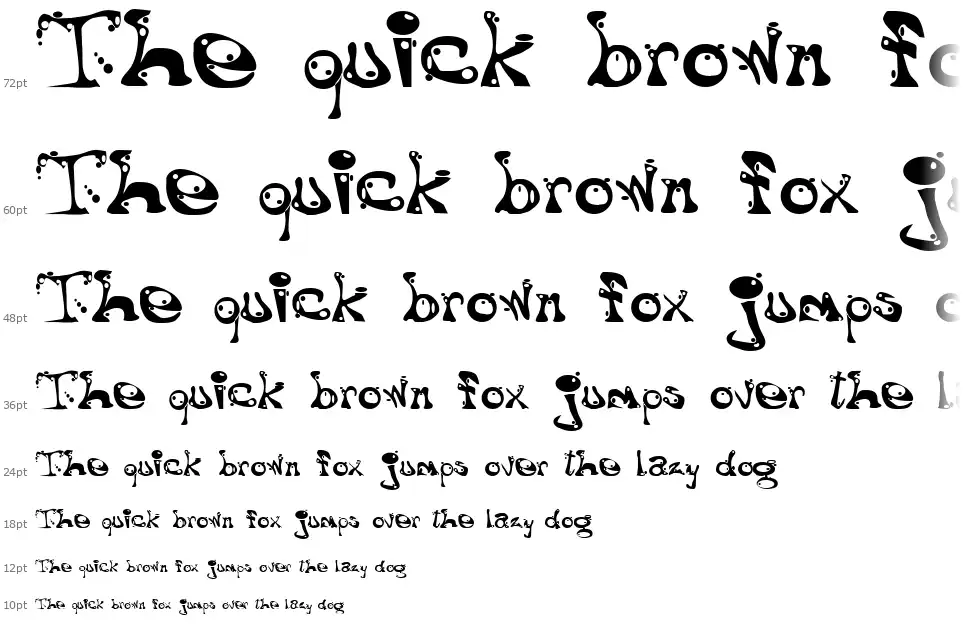 72pt The quick brown fo
60pt The quick brown fox j
48pt The quick brown fox jumps o
36pt The quick brown fox jumps over the la
24pt The quick brown fox jumps over the lazy dog
18pt The quick brown fox jumps over the lazy dog
12pt The quick brown fox jumps over the lazy dog
10pt The quick brown fox jumps over the lazy dog